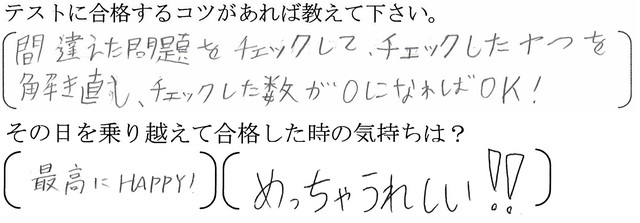 テストに合格するコツがあれば教えて下さい。
間違えた問題をチェックして、チェックしたやつを
解き直し、チェックした数が0になればOK!
その日を乗り越えて合格した時の気持ちは？
最高にHAPPY! めっちゃうれしい!!